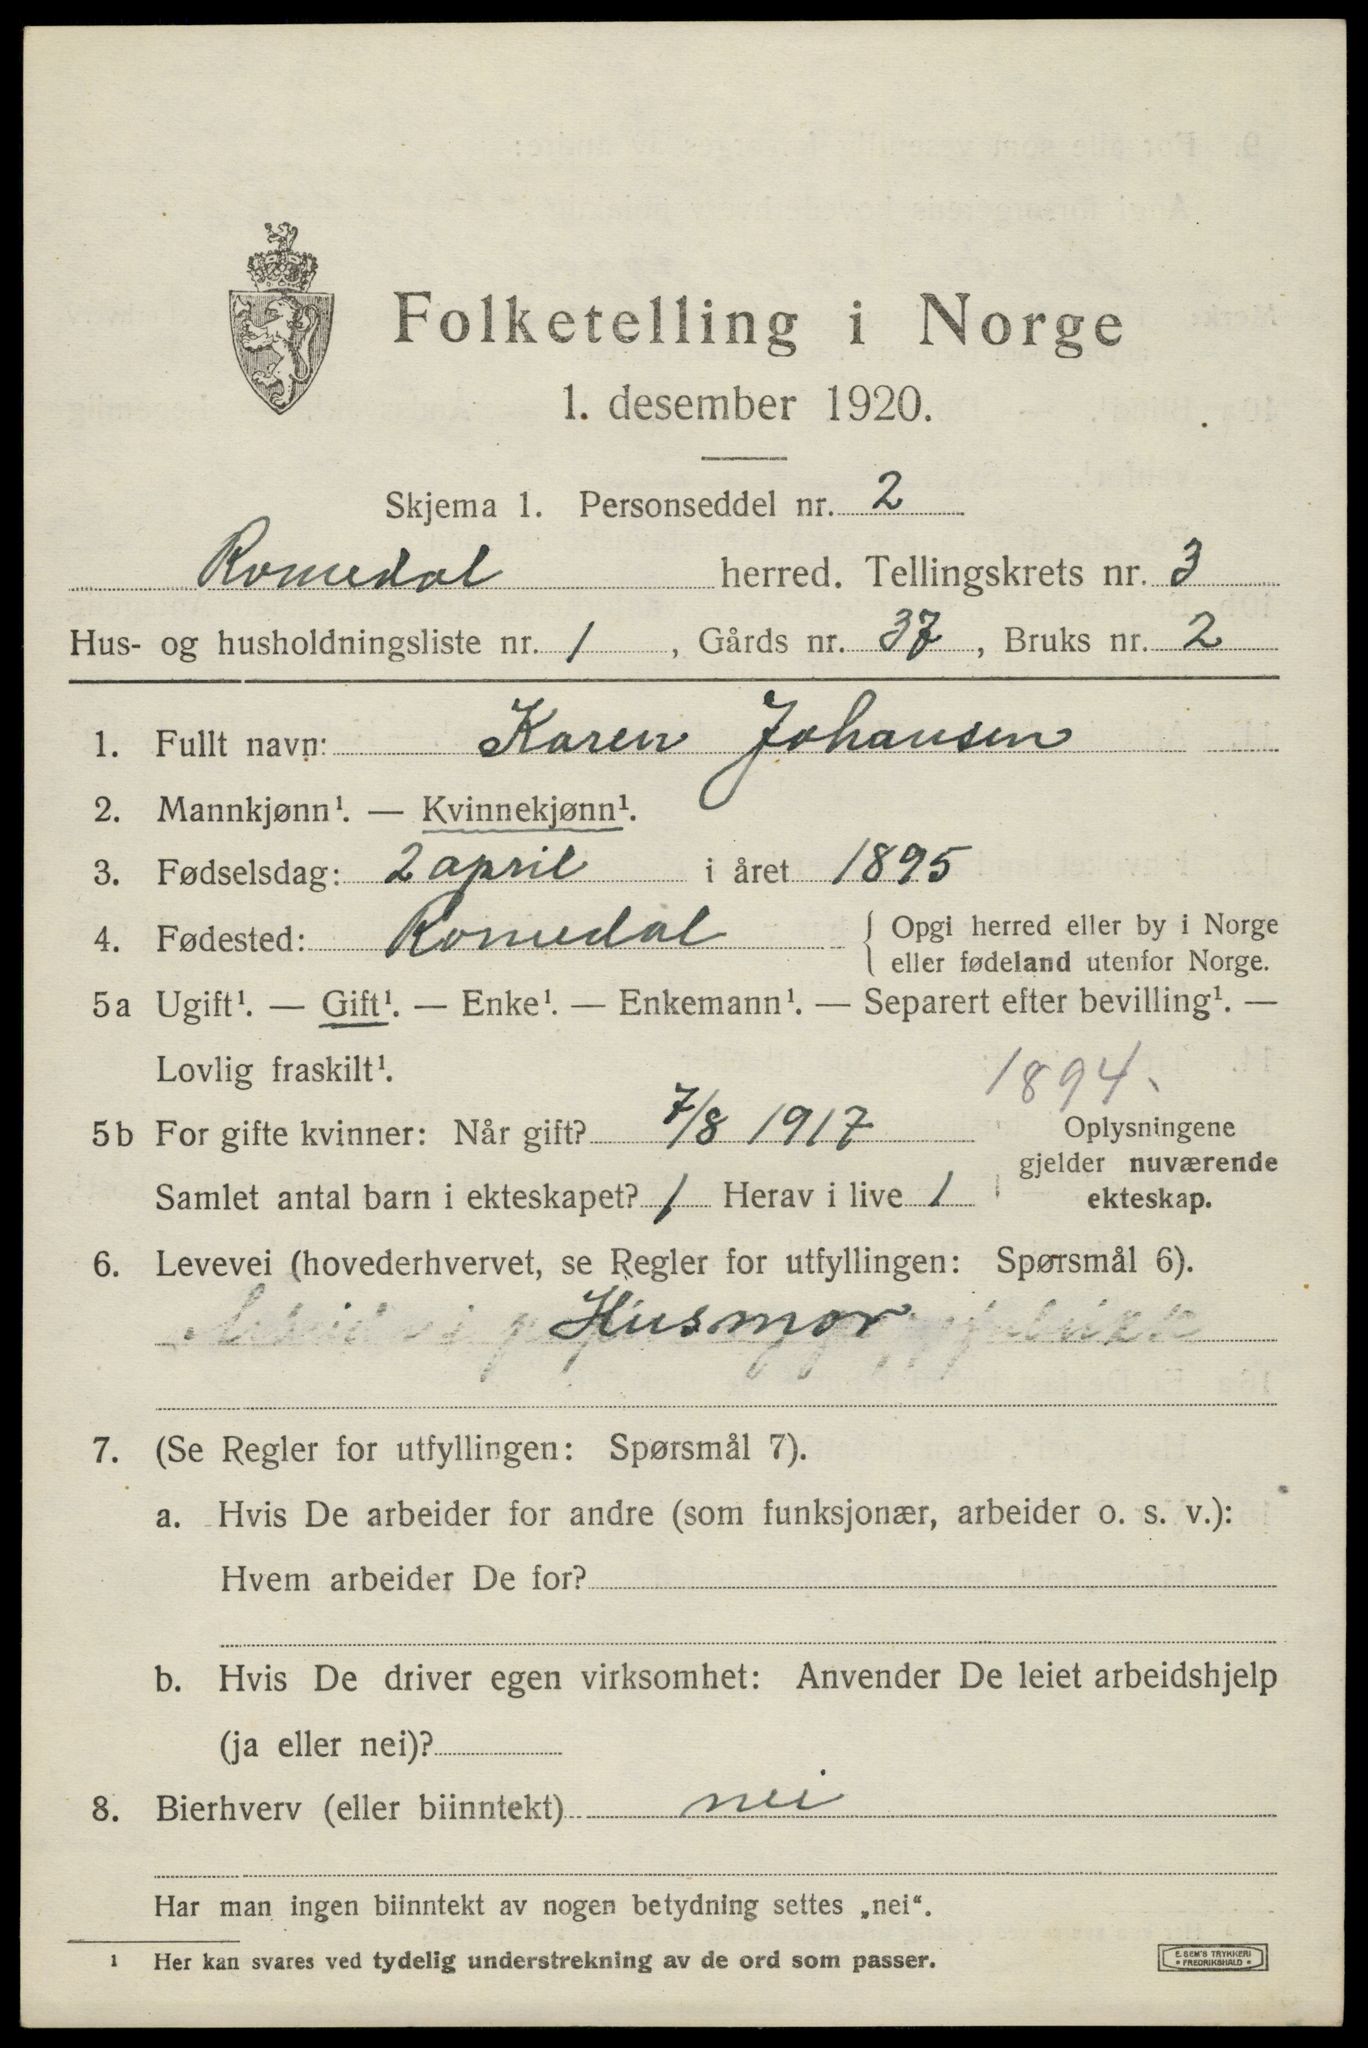 Folketelling i Norge
1. desember 1920.
Skjema 1. Personseddel nr. 2
Romedal herred. Tellingskrets nr. 3
Hus- og husholdningsliste nr. 1, Gårds nr. 37, Bruks nr. 2
1. Fullt navn: Karen Johansen
2. Mannkjønn¹. — Kvinnekjønn¹.
3. Fødselsdag: 2 april i året 1895
4. Fødested: Romedal { Opgi herred eller by i Norge
eller fødeland utenfor Norge.
5a Ugift¹. — Gift¹. — Enke¹. — Enkemann¹. — Separert efter bevilling¹. —
Lovlig fraskilt¹.
1894.
5b For gifte kvinner: Når gift? 7/8 1917
Samlet antal barn i ekteskapet? 1 Herav i live 1
Oplysningene
gjelder nuværende
ekteskap.
6. Levevei (hovederhvervet, se Regler for utfyllingen: Spørsmål 6).
Husmor
7. (Se Regler for utfyllingen: Spørsmål 7).
a. Hvis De arbeider for andre (som funksjonær, arbeider o. s. v.):
Hvem arbeider De for?
b. Hvis De driver egen virksomhet: Anvender De leiet arbeidshjelp
(ja eller nei)?
8. Bierhverv (eller biinntekt) nei
Har man ingen biinntekt av nogen betydning settes „nei“.
¹ Her kan svares ved tydelig understrekning av de ord som passer.
E. SEM'S TRYKKERI
• FREDRIKSHALD •